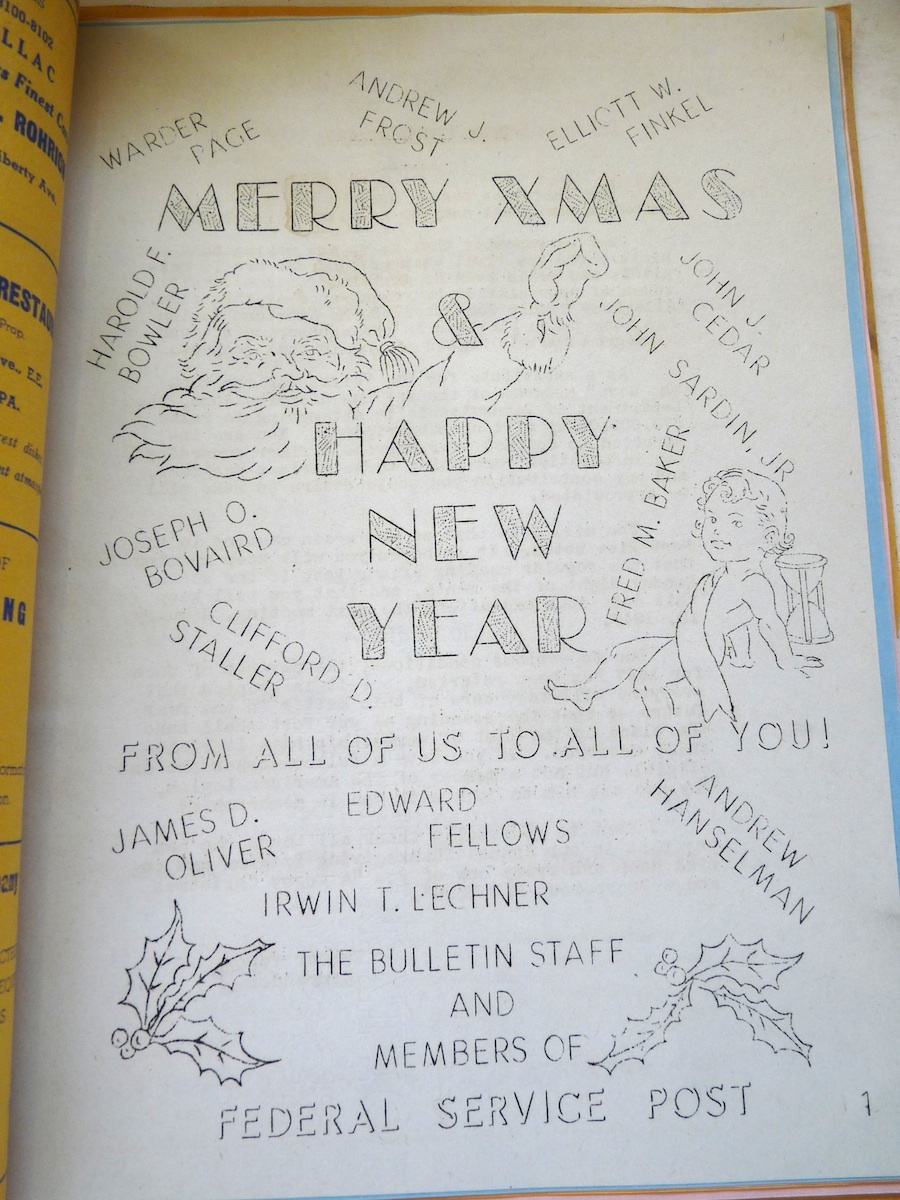 8100-8102
LLAC
's Finest
. ROHRIG
iberty Ave.
RESTAU
Prop.
ve., E.E.
PA.
OF
NG
WARDER
PAGE
ANDREW J.
FROST
ELLIOTT W.
FINKEL
MERRY XMAS
HAROLD F.
BOWLER
&
JOHN J.
CEDAR
JOHN SARDIN, JR
HAPPY
NEW
YEAR
FRED M. BAKER
JOSEPH O.
BOVAIRD
CLIFFORD D.
STALLER
FROM ALL OF US TO ALL OF YOU!
JAMES D.
OLIVER
EDWARD
FELLOWS
ANDREW
HANSELMAN
IRWIN T. LECHNER
THE BULLETIN STAFF
AND
MEMBERS OF
FEDERAL SERVICE POST
1